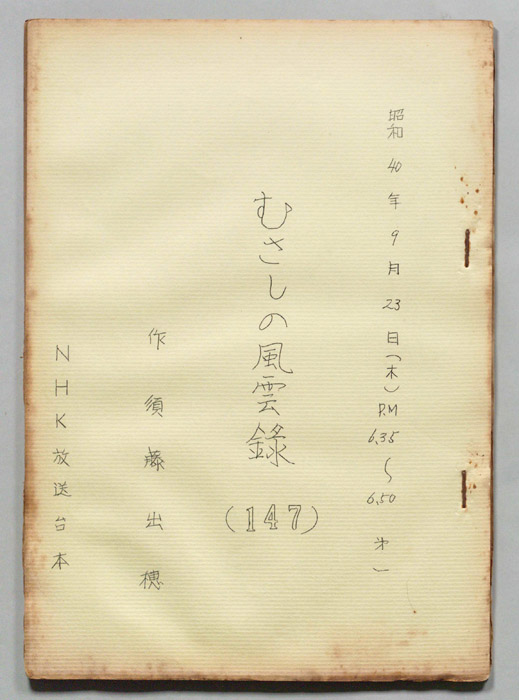 昭和40年9月23日(木)P.M 6.35〜6.50 㐧一
むさしの風雲錄
(147)
作 須藤出穂
NHK放送台本